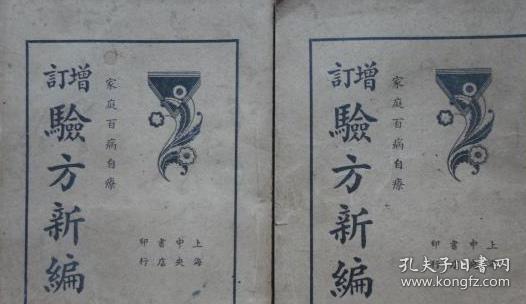 增訂
驗方新編
家庭百病自療
上海
中央
書店
印行
增訂
驗方新編
家庭百病自療
上
中
書
印行
孔夫子旧书网